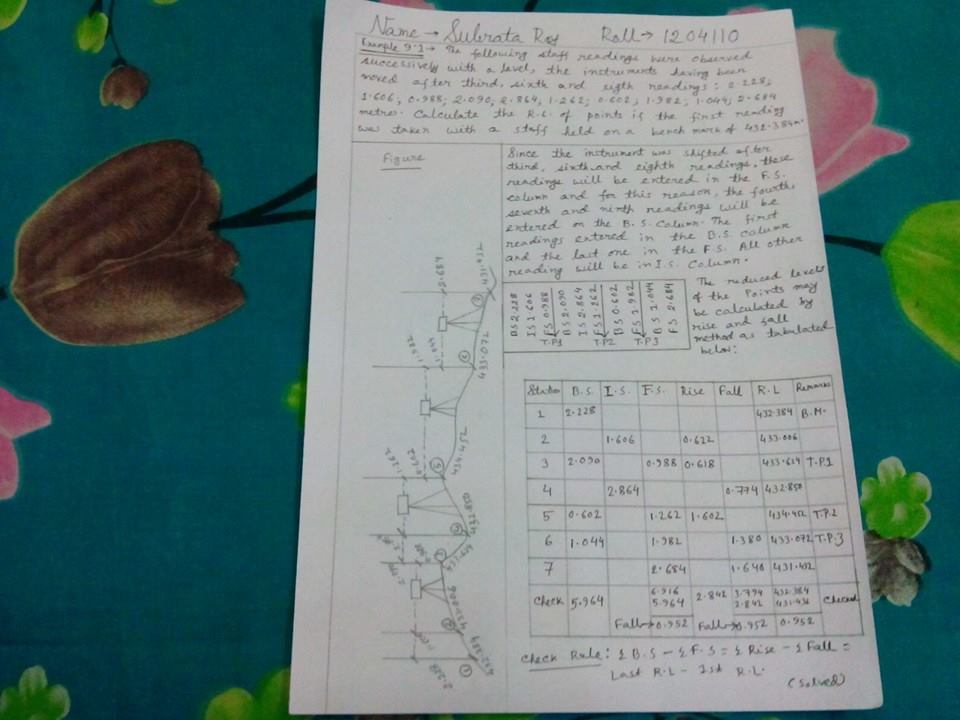 Name → Subrata Roy Roll → 1204110
Example 9.1 → The following staff readings were observed
successively with a level, the instruments having been
moved after third, sixth and eigth readings: 2.228;
1.606; 0.988; 2.090; 2.864; 1.262; 0.602; 1.982; 1.044; 2.684
metres. Calculate the R.L. of points if the first reading
was taken with a staff held on a bench mark of 432.384m.
Figure
2.684
431.432
7
1.982
1.044
6
433.072
1.262
0.602
5
434.452
4
432.850
3
2
433.006
1
432.384
2.228
Since the instrument was shifted after
third, sixth and eighth readings, these
readings will be entered in the F.S.
column and for this reason, the fourth,
seventh and ninth readings will be
entered on the B.S. Column. The first
readings entered in the B.S. column
and the last one in the F.S. All other
reading will be in I.S. Column.
BS 2.228
IS 1.606
FS 0.988
BS 2.090
IS 2.864
FS 1.262
BS 0.602
FS 1.982
BS 1.044
FS 2.684
T.P1 T.P2 T.P3
The reduced levels
of the Points may
be calculated by
rise and fall
method as tabulated
below:
Station B.S. I.S. F.S. Rise Fall R.L Remarks
1 2.228 432.384 B.M.
2 1.606 0.622 433.006
3 2.090 0.988 0.618 433.624 T.P.1
4 2.864 0.774 432.850
5 0.602 1.262 1.602 434.452 T.P.2
6 1.044 1.982 1.380 433.072 T.P.3
7 2.684 1.640 431.432
Check 5.964 6.916 2.842 3.794 432.384 Checked
5.964 2.842 431.432
Fall→ 0.952 Fall→ 0.952 0.952
Check Rule: Σ B.S - Σ F.S = Σ Rise - Σ Fall =
Last R.L - 1st R.L.
(Solved)